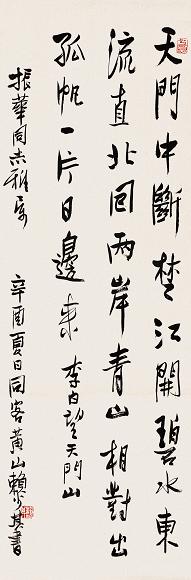 天門中斷楚江開碧水東
流直北回兩岸青山相對出
孤帆一片日邊來 李白望天門山
振華同志雅属 辛酉夏日同客黄山賴少其書